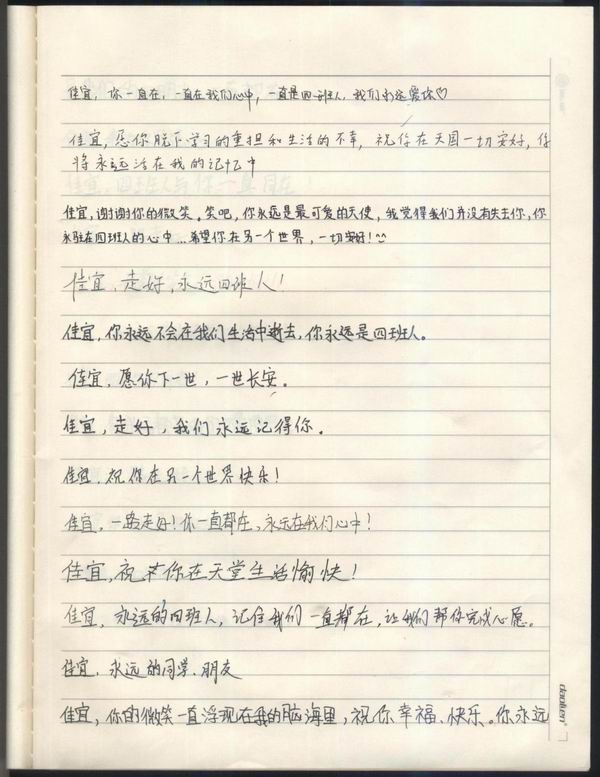 佳宜，你一直在，一直在我们心中，一直是四班人，我们永远爱你♡
佳宜，愿你脱下学习的重担和生活的不幸，祝你在天国一切安好，你
将永远活在我的记忆中
佳宜，谢谢你的微笑。笑吧，你永远是最可爱的天使，我觉得我们并没有失去你，你
永驻在四班人的心中...希望你在另一个世界，一切安好！^^
佳宜，走好，永远四班人！
佳宜，你永远不会在我们生活中逝去，你永远是四班人。
佳宜，愿你下一世，一世长安。
佳宜，走好，我们永远记得你。
佳宜，祝你在另一个世界快乐！
佳宜，一路走好！你一直都在，永远在我们心中！
佳宜，祝你在天堂生活愉快！
佳宜，永远的四班人，记住我们一直都在，让我们帮你完成心愿。
佳宜，永远的同学、朋友
佳宜，你的微笑一直浮现在我的脑海里，祝你幸福、快乐。你永远